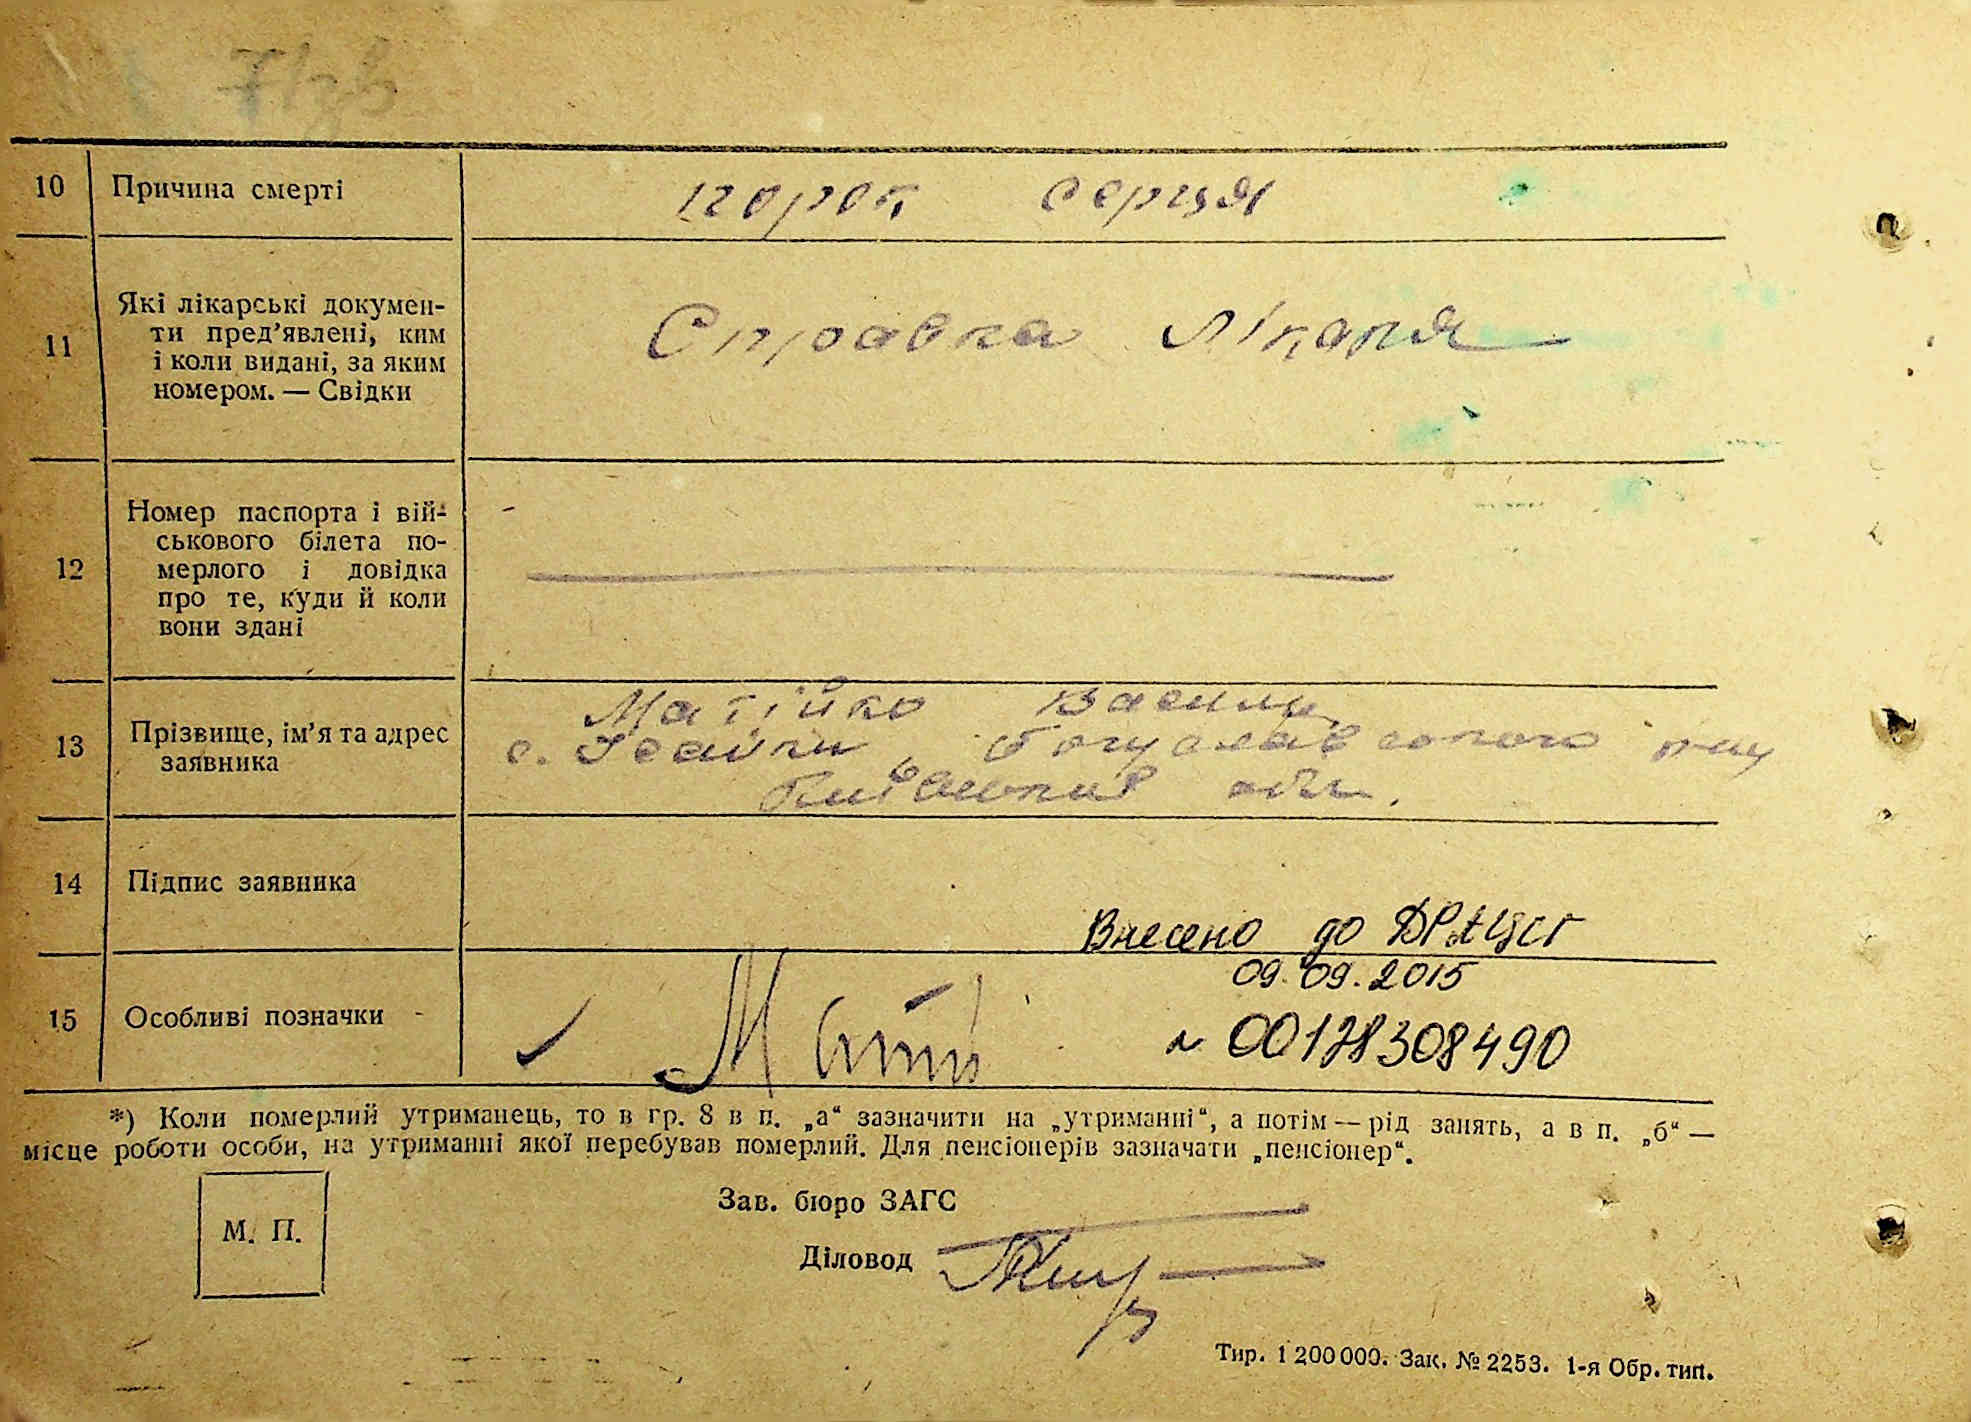 10 Причина смерті порок серця
11 Які лікарські докумен-
ти пред’явлені, ким
і коли видані, за яким
номером. — Свідки
Справка лікаря
12 Номер паспорта і вій-
ськового білета по-
мерлого і довідка
про те, куди й коли
вони здані
13 Прізвище, ім’я та адрес
заявника
Матійко Василь
с. Ісайки Богуславського
Київської обл.
14 Підпис заявника
Внесено до ДРАЦСГ
09.09.2015
15 Особливі позначки
№ 00128308490
*) Коли померлий утриманець, то в гр. 8 в п. „а“ зазначити на „утриманні“, а потім — рід занять, а в п. „б“ —
місце роботи особи, на утриманні якої перебував померлий. Для пенсіонерів зазначати „пенсіонер“.
М. П.
Зав. бюро ЗАГС
Діловод
Тир. 1 200 000. Зак. № 2253. 1-я Обр. тип.